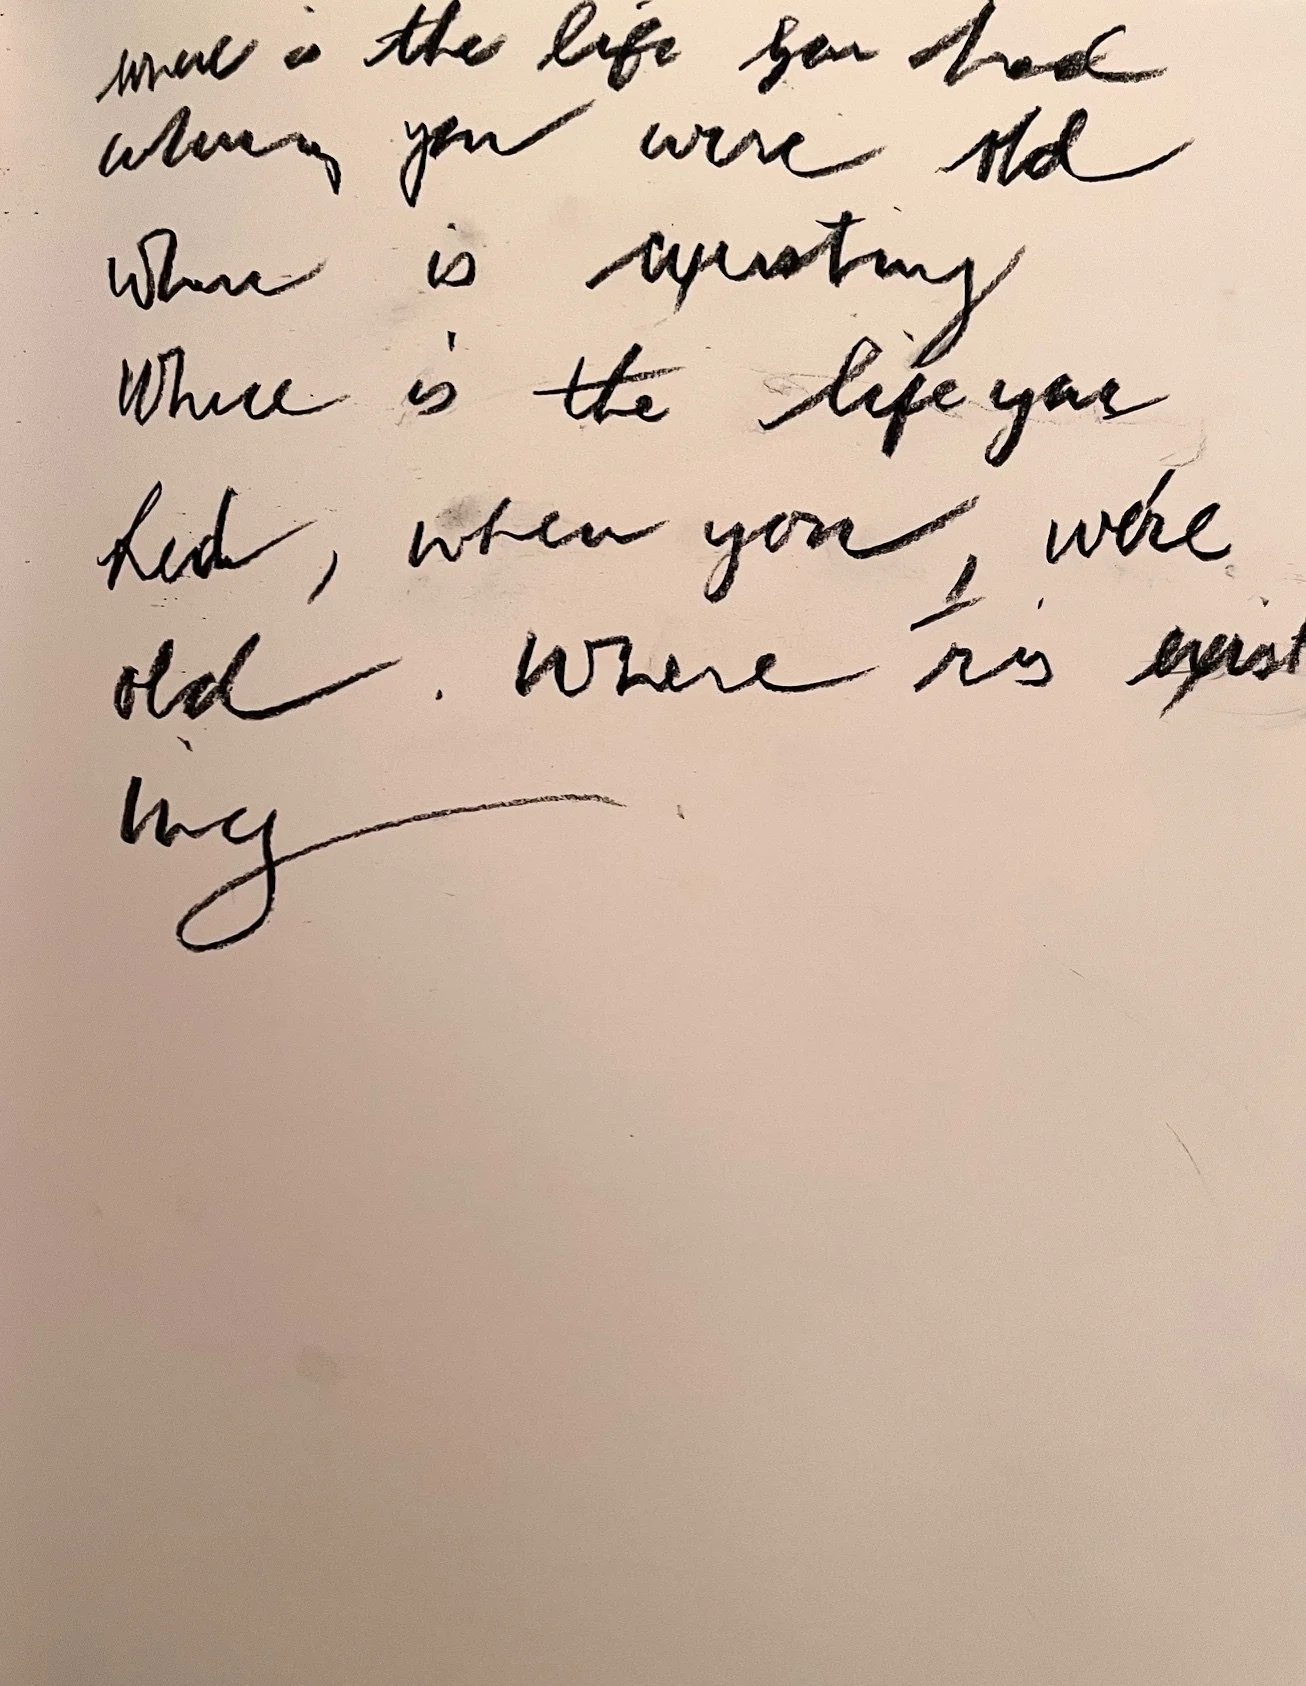 where is the life you had
when you were old
where is existing
Where is the life you
had, when you, were
old. Where is exist
ing